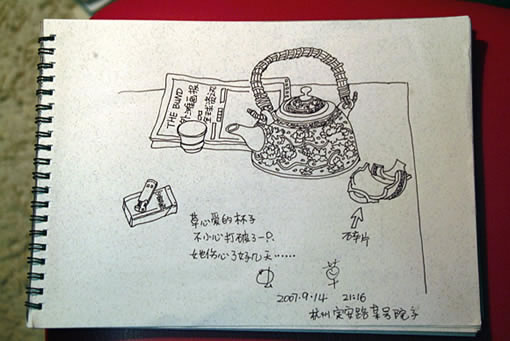 THE BUND
外滩画报
草心爱的杯子
不小心打破了一只.
她伤心了好几天……
碎片
虫 草
2007.9.14 21:16
杭州